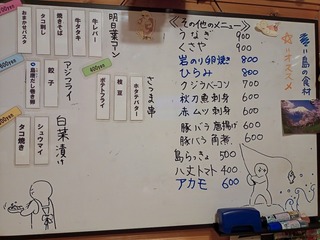 青=島の食材
☆=オススメ
<その他のメニュー>
うなぎ 900
くさや 900
岩のり卵焼き 800
ひらみ 800
クジラベーコン 700
秋刀魚刺身 600
赤ムツ刺身 600
豚バラ唐揚げ 600
豚バラ角煮 600
島らっきょ 500
八丈トマト 400
アカモ 600
さつま串
明日葉アン
牛レバー
牛タタキ
焼きそば
タコ刺し
ホタテバター
枝豆
ポテトフライ
アジフライ
餃子
島唐だし巻き卵
白菜漬け
シュウマイ
タコ焼き